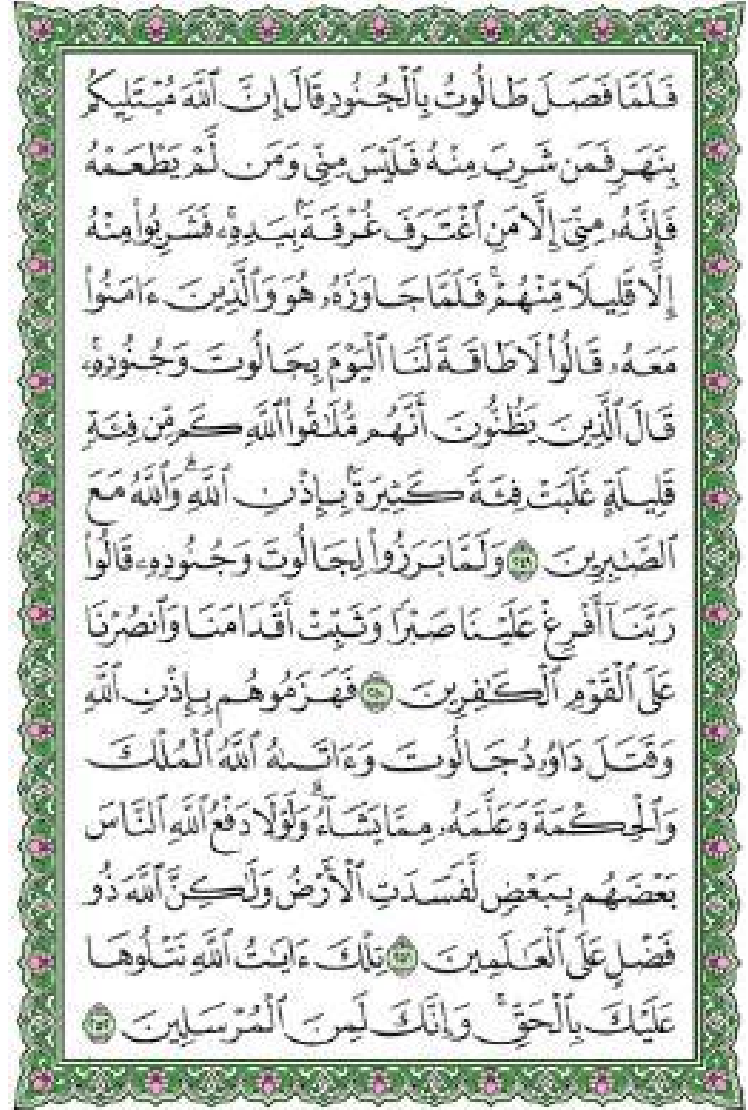 فَلَمَّا فَصَلَ طَالُوتُ بِٱلْجُنُودِ قَالَ إِنَّ ٱللَّهَ مُبْتَلِيكُم
بِنَهَرٍ فَمَن شَرِبَ مِنْهُ فَلَيْسَ مِنِّي وَمَن لَّمْ يَطْعَمْهُ
فَإِنَّهُۥ مِنِّيٓ إِلَّا مَنِ ٱغْتَرَفَ غُرْفَةَۢ بِيَدِهِۦۚ فَشَرِبُوا۟ مِنْهُ
إِلَّا قَلِيلًا مِّنْهُمْۚ فَلَمَّا جَاوَزَهُۥ هُوَ وَٱلَّذِينَ ءَامَنُوا۟
مَعَهُۥ قَالُوا۟ لَا طَاقَةَ لَنَا ٱلْيَوْمَ بِجَالُوتَ وَجُنُودِهِۦۚ
قَالَ ٱلَّذِينَ يَظُنُّونَ أَنَّهُم مُّلَٰقُوا۟ ٱللَّهِ كَم مِّن فِئَةٍ
قَلِيلَةٍ غَلَبَتْ فِئَةً كَثِيرَةَۢ بِإِذْنِ ٱللَّهِۗ وَٱللَّهُ مَعَ
ٱلصَّٰبِرِينَ ٢٤٩ وَلَمَّا بَرَزُوا۟ لِجَالُوتَ وَجُنُودِهِۦ قَالُوا۟
رَبَّنَآ أَفْرِغْ عَلَيْنَا صَبْرًا وَثَبِّتْ أَقْدَامَنَا وَٱنصُرْنَا
عَلَى ٱلْقَوْمِ ٱلْكَٰفِرِينَ ٢٥٠ فَهَزَمُوهُم بِإِذْنِ ٱللَّهِ
وَقَتَلَ دَاوُۥدُ جَالُوتَ وَءَاتَىٰهُ ٱللَّهُ ٱلْمُلْكَ
وَٱلْحِكْمَةَ وَعَلَّمَهُۥ مِمَّا يَشَآءُۗ وَلَوْلَا دَفْعُ ٱللَّهِ ٱلنَّاسَ
بَعْضَهُم بِبَعْضٍ لَّفَسَدَتِ ٱلْأَرْضُ وَلَٰكِنَّ ٱللَّهَ ذُو
فَضْلٍ عَلَى ٱلْعَٰلَمِينَ ٢٥١ تِلْكَ ءَايَٰتُ ٱللَّهِ نَتْلُوهَا
عَلَيْكَ بِٱلْحَقِّۚ وَإِنَّكَ لَمِنَ ٱلْمُرْسَلِينَ ٢٥٢